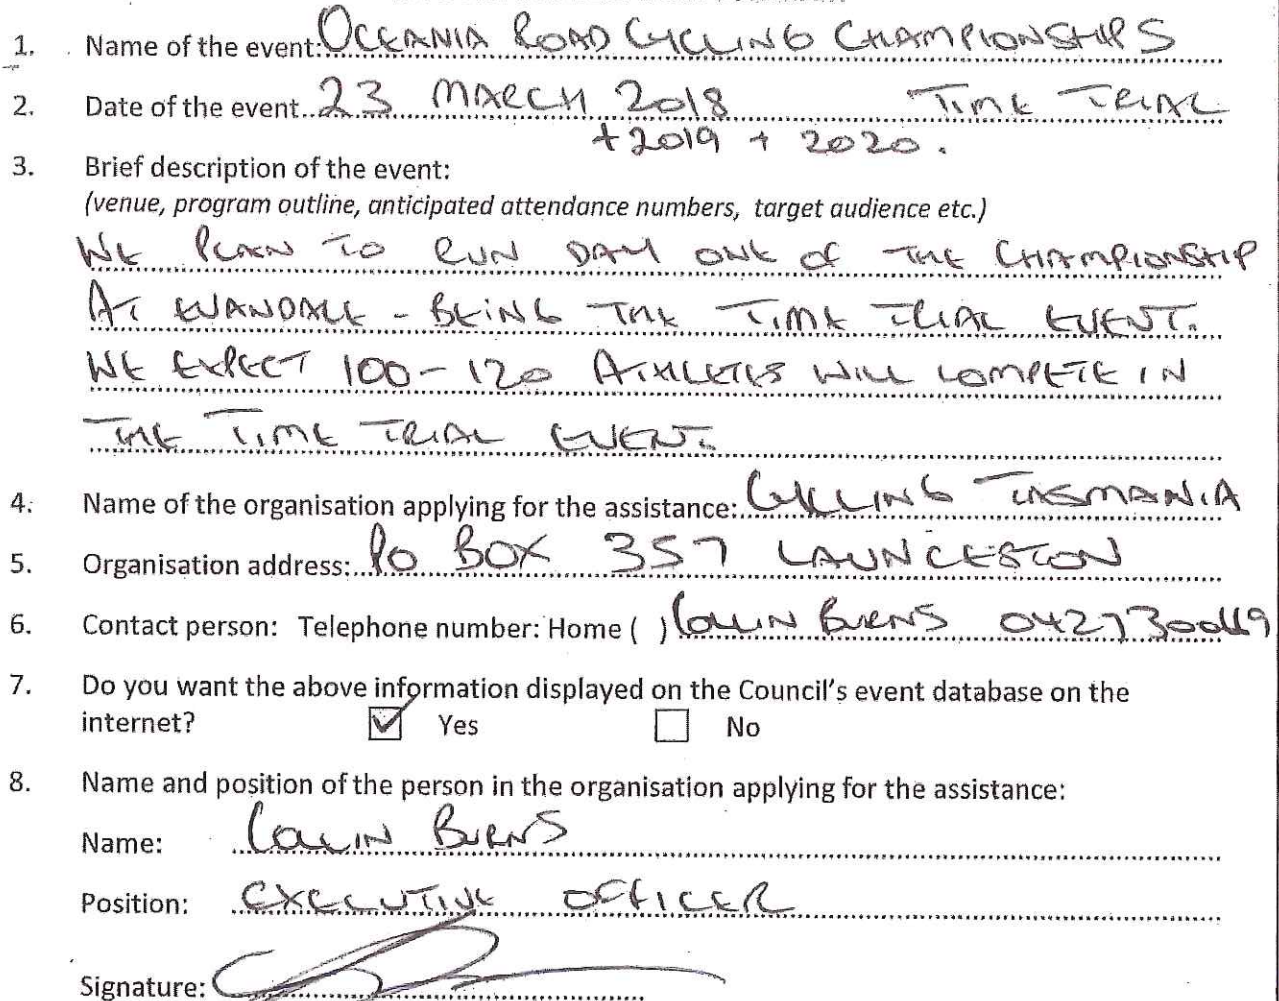 1. Name of the event: OCEANIA ROAD CYCLING CHAMPIONSHIPS
2. Date of the event 23 MARCH 2018 TIME TRIAL
+2019 + 2020.
3. Brief description of the event:
(venue, program outline, anticipated attendance numbers, target audience etc.)
WE PLAN TO RUN DAY ONE OF THE CHAMPIONSHIP
AT EVANDALE - BEING THE TIME TRIAL EVENT.
WE EXPECT 100-120 ATHLETES WILL COMPETE IN
THE TIME TRIAL EVENT.
4. Name of the organisation applying for the assistance: CYCLING TASMANIA
5. Organisation address: PO BOX 357 LAUNCESTON
6. Contact person: Telephone number: Home ( ) COLLIN BURNS
7. Do you want the above information displayed on the Council's event database on the
internet? Yes No
8. Name and position of the person in the organisation applying for the assistance:
Name: COLLIN BURNS
Position: EXECUTIVE OFFICER
Signature: